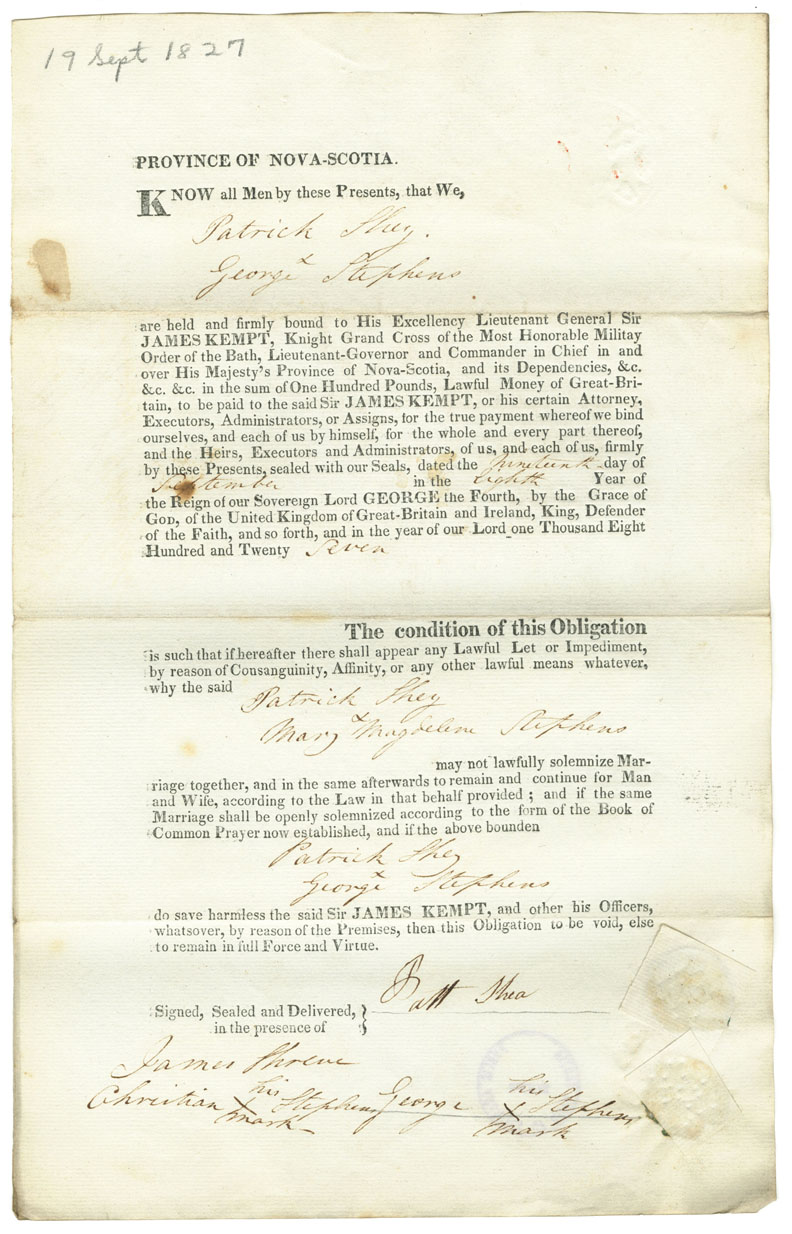 19 Sept 1827
PROVINCE OF NOVA-SCOTIA.
KNOW all Men by these Presents, that We,
Patrick Shey.
&
George Stephens
are held and firmly bound to His Excellency Lieutenant General Sir
JAMES KEMPT, Knight Grand Cross of the Most Honorable Militay
Order of the Bath, Lieutenant-Governor and Commander in Chief in and
over His Majesty's Province of Nova-Scotia, and its Dependencies, &c.
&c. &c. in the sum of One Hundred Pounds, Lawful Money of Great-Bri-
tain, to be paid to the said Sir JAMES KEMPT, or his certain Attorney,
Executors, Administrators, or Assigns, for the true payment whereof we bind
ourselves, and each of us by himself, for the whole and every part thereof,
and the Heirs, Executors and Administrators, of us, and each of us, firmly
by these Presents, sealed with our Seals, dated the nineteenth day of
September in the eighth Year of
the Reign of our Sovereign Lord GEORGE the Fourth, by the Grace of
GOD, of the United Kingdom of Great-Britain and Ireland, King, Defender
of the Faith, and so forth, and in the year of our Lord one Thousand Eight
Hundred and Twenty Seven
The condition of this Obligation
is such that if hereafter there shall appear any Lawful Let or Impediment,
by reason of Consanguinity, Affinity, or any other lawful means whatever,
why the said Patrick Shey
&
Mary Magdelene Stephens
may not lawfully solemnize Mar-
riage together, and in the same afterwards to remain and continue for Man
and Wife, according to the Law in that behalf provided ; and if the same
Marriage shall be openly solemnized according to the form of the Book of
Common Prayer now established, and if the above bounden
Patrick Shey
&
George Stephens
do save harmless the said Sir JAMES KEMPT, and other his Officers,
whatsover, by reason of the Premises, then this Obligation to be void, else
to remain in full Force and Virtue.
Patt Shea
Signed, Sealed and Delivered,
in the presence of
James Shreve
Christian his X mark Stephens George his X mark Stephens